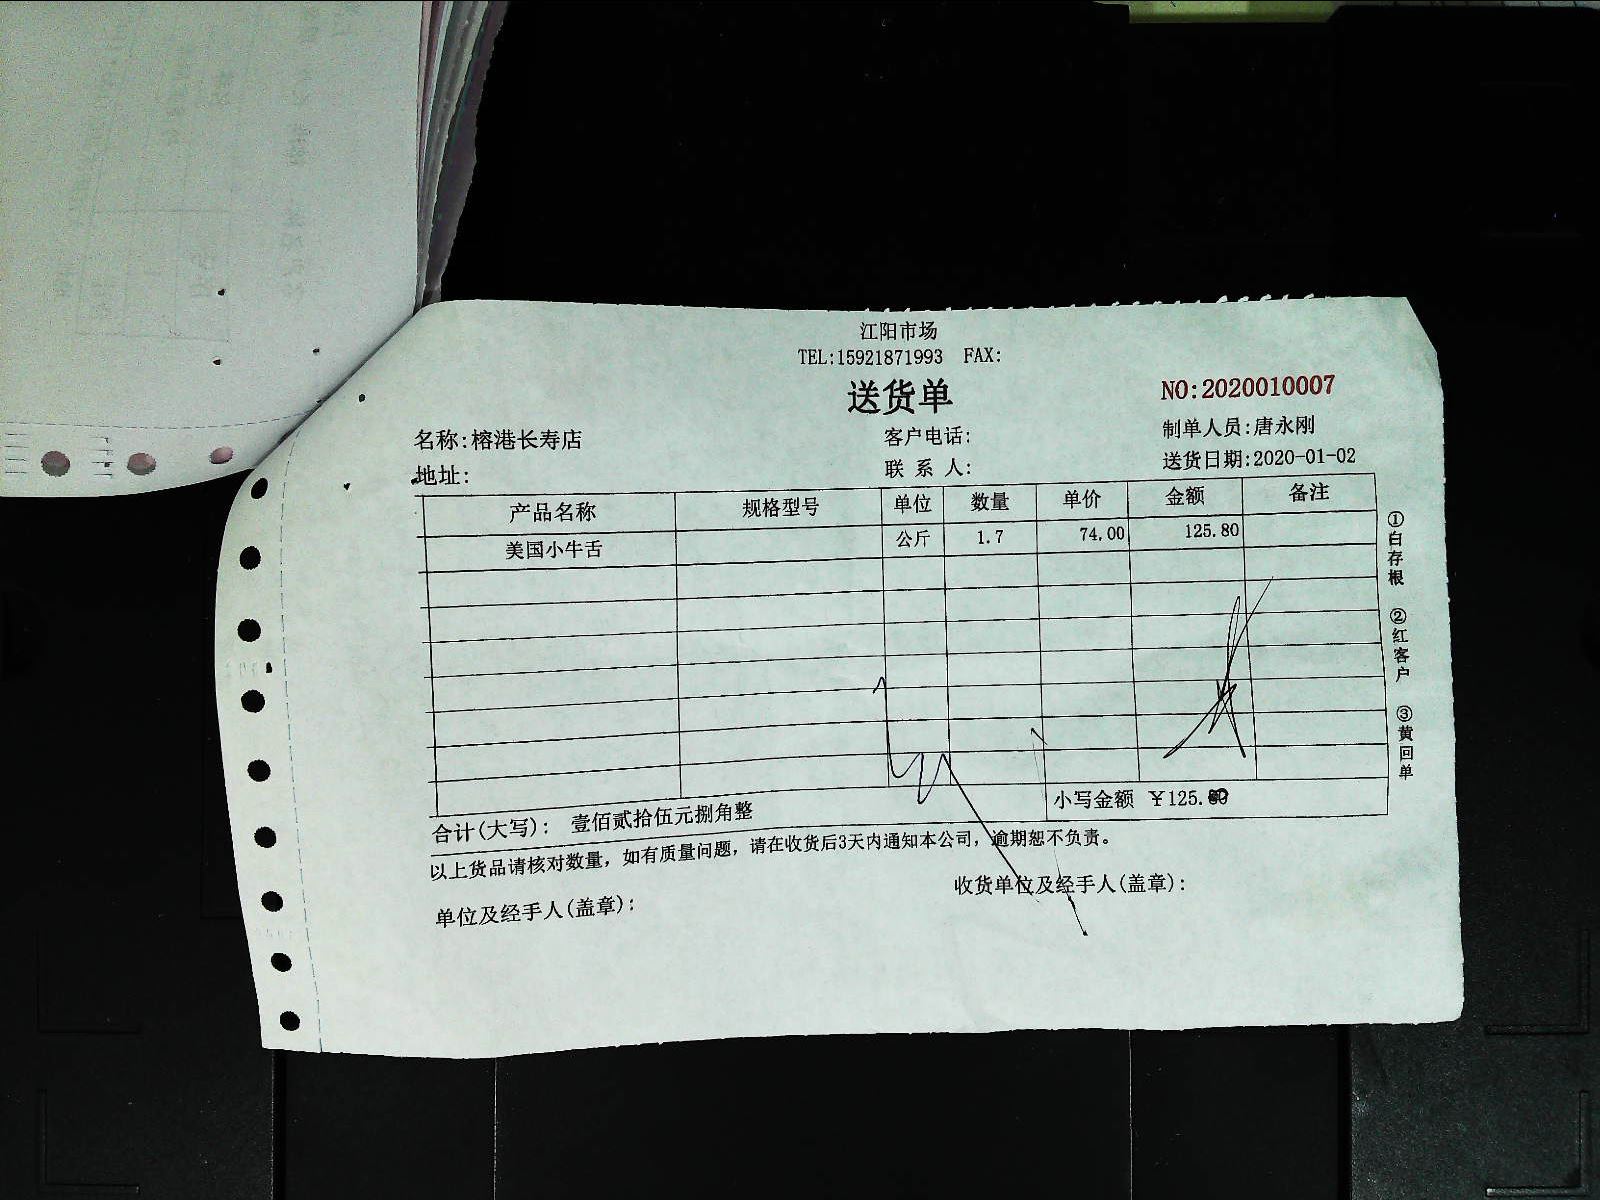 江阳市场
TEL:15921871993 FAX:
送货单
NO:2020010007
名称:榕港长寿店 客户电话: 制单人员:唐永刚
地址: 联 系 人: 送货日期:2020-01-02
产品名称 规格型号 单位 数量 单价 金额 备注
美国小牛舌 公斤 1.7 74.00 125.80
合计(大写): 壹佰贰拾伍元捌角整 小写金额 ￥125.80
以上货品请核对数量，如有质量问题，请在收货后3天内通知本公司，逾期恕不负责。
单位及经手人(盖章): 收货单位及经手人(盖章):
①白存根 ②红客户 ③黄回单